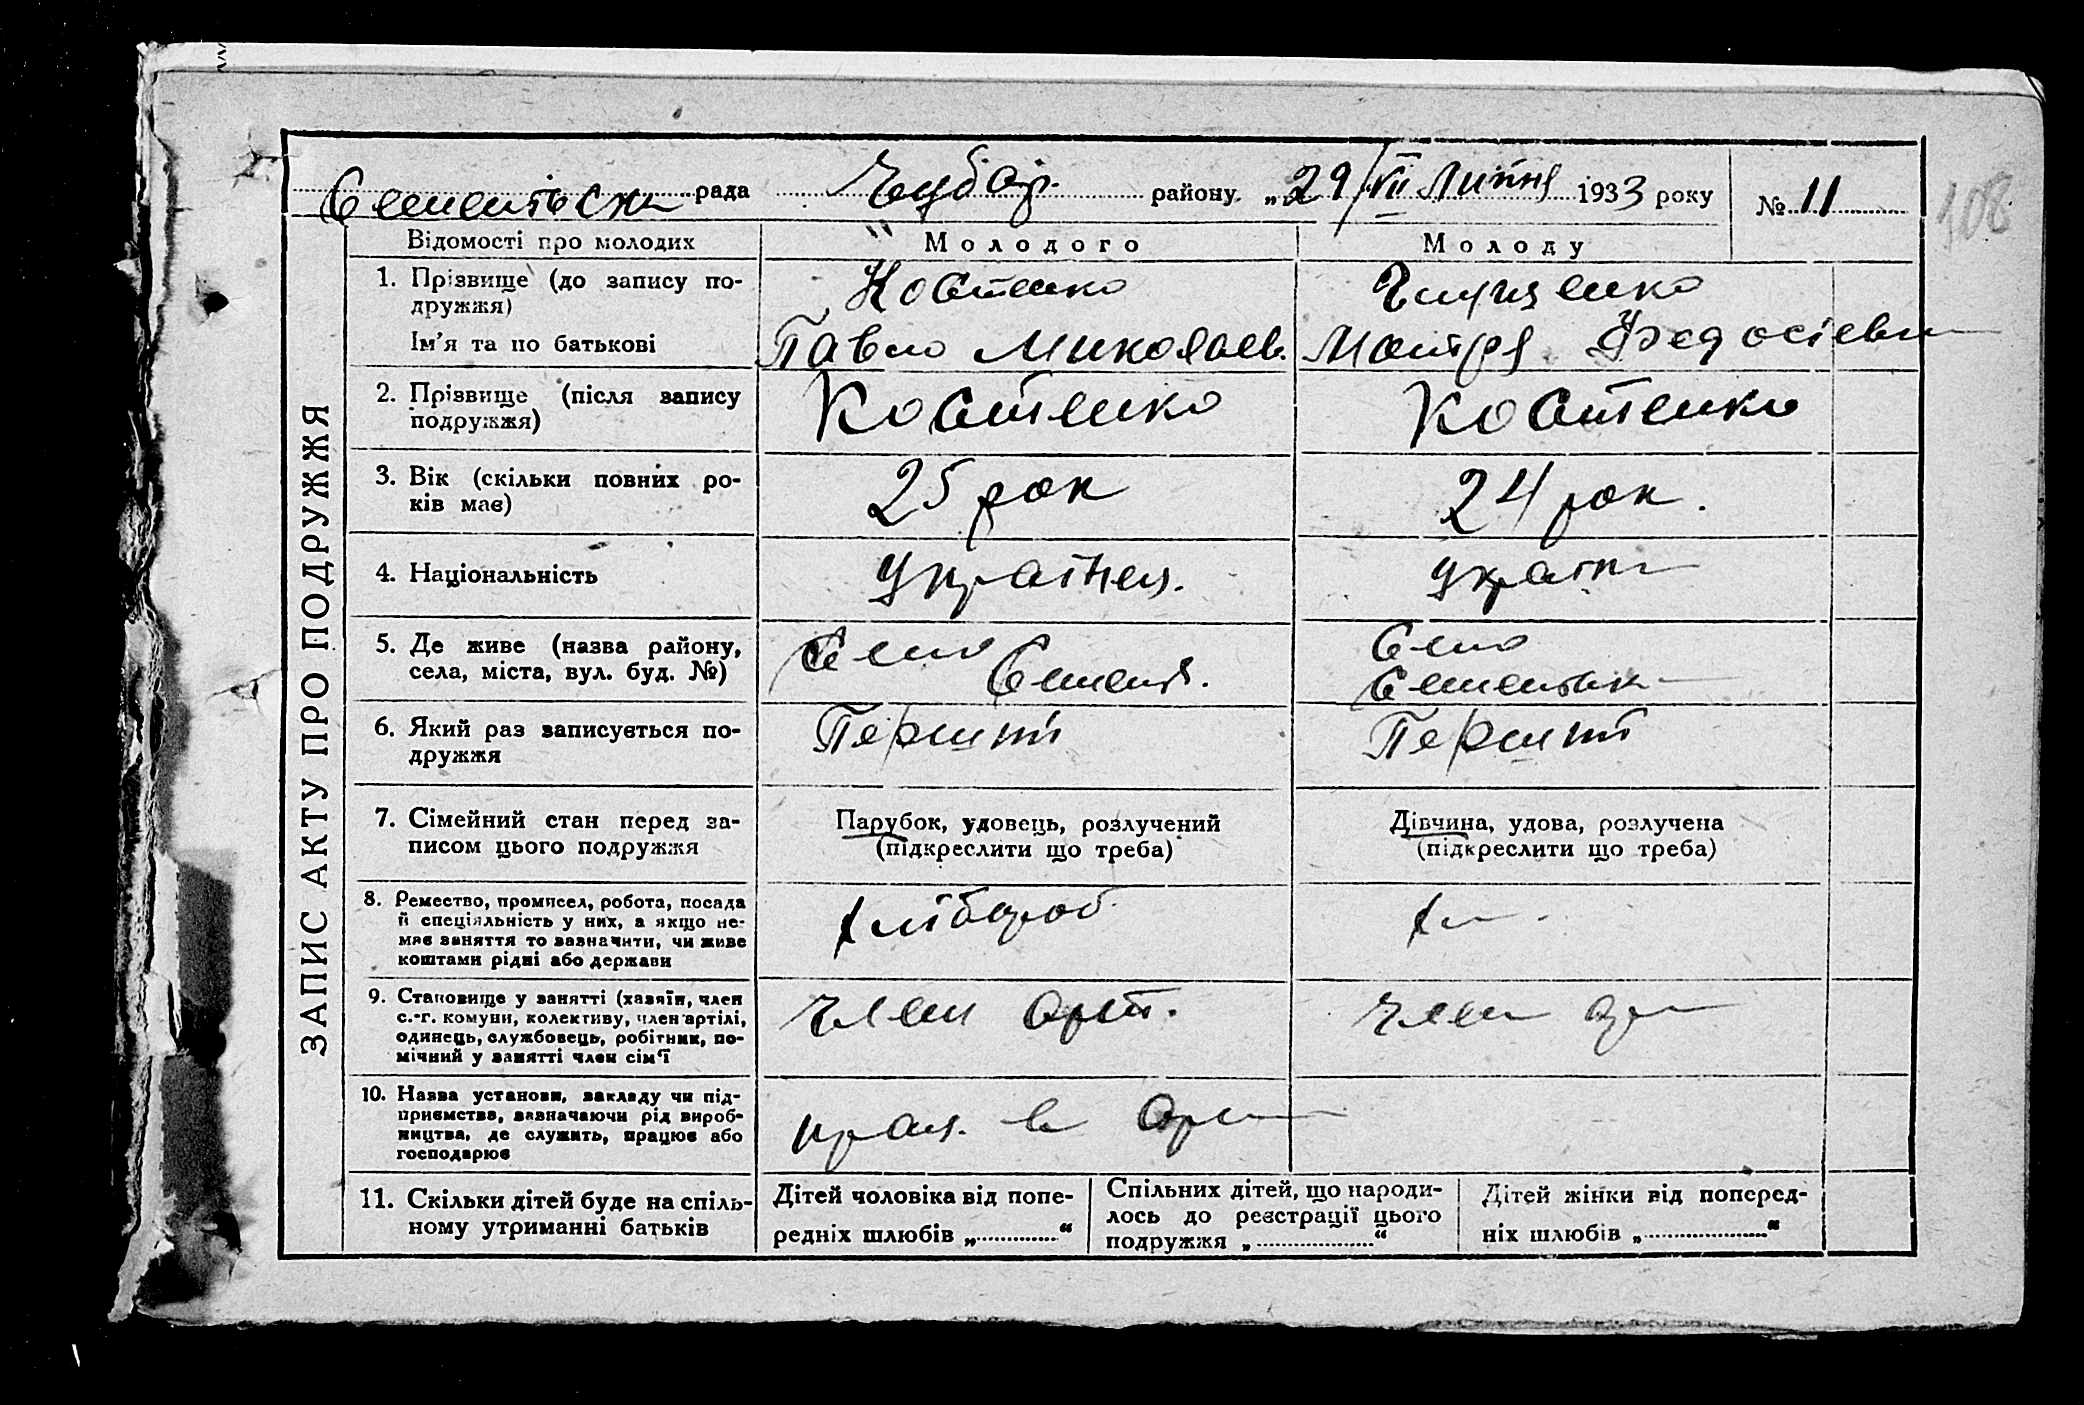 рада Чубар. району. „29/VII Липня 1933 року № 11
108
ЗАПИС АКТУ ПРО ПОДРУЖЖЯ
Відомості про молодих
Молодого
Молоду
1. Прізвище (до запису по-
дружжя)
Костенко
Ім'я та по батькові
Павло Миколаєв.
Мотря Федосіевн
2. Прізвище (після запису
подружжя)
Костенко
Костенко
3. Вік (скільки повних ро-
ків має)
25 рок
24 рок.
4. Національність
Українец.
україн
5. Де живе (назва району,
села, міста, вул. буд. №)
Село
Село
6. Який раз записується по-
дружжя
Перший
Перший
7. Сімейний стан перед за-
писом цього подружжя
Парубок, удовець, розлучений
(підкреслити що треба)
Дівчина, удова, розлучена
(підкреслити що треба)
8. Ремество, промисел, робота, посада
й спеціяльність у них, а якщо не-
має заняття то зазначити, чи живе
коштами рідні або держави
хлібороб.
хл
9. Становище у занятті (хазяїн, член
с.-г. комуни, колективу, член артілі,
одинець, службовець, робітник, по-
мічний у занятті член сім'ї
Член арт.
Член ар
10. Назва установи, закладу чи під-
приємства, зазначаючи рід вироб-
ництва, де служить, працює або
господарює
прац. в Арт
11. Скільки дітей буде на спіль-
ному утриманні батьків
Дітей чоловіка від попе-
редніх шлюбів „.............“
Спільних дітей, що народи-
лось до реєстрації цього
подружжя „.................“
Дітей жінки від поперед-
ніх шлюбів „.................“